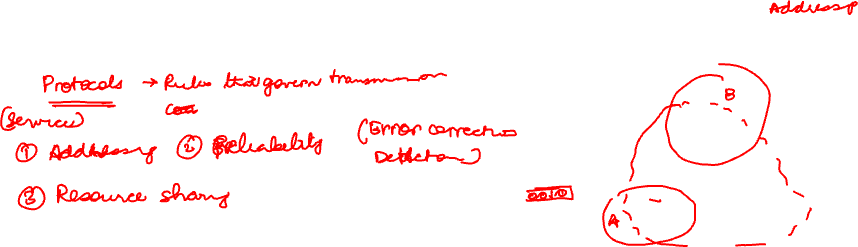 Address
Protocols → Rules that govern transmission
(Services)
① Addressing ② Reliability (Error correction
Detection)
③ Resource sharing
B
0010
A